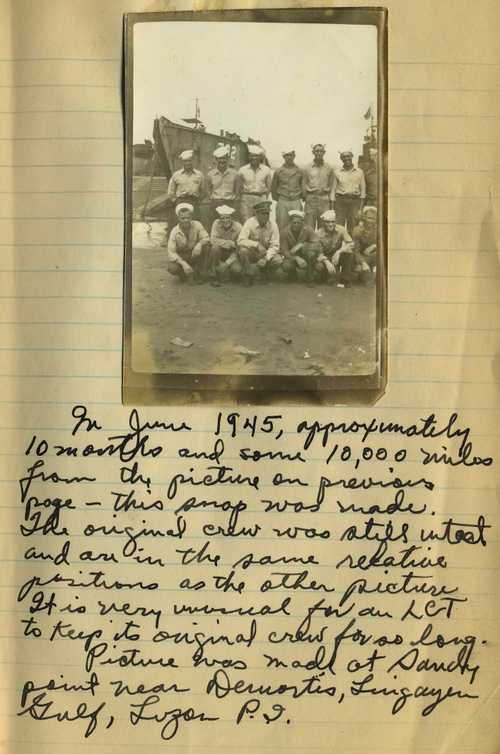 In June 1945, approximately
10 months and some 10,000 miles
from the picture on previous
page - this snap was made.
The original crew was still intact
and are in the same relative
positions as the other picture
It is very unusual for an LCT
to keep its original crew for so long.
Picture was made at Sandy
point near Demortis, Lingayen
Gulf, Luzon P.I.